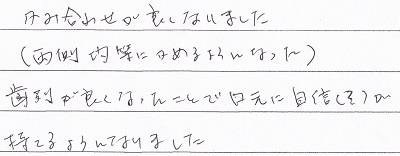 かみ合わせが良くなりました
(両側均等にかめるようになった)
歯列が良くなったことで口元に自信(を)が
持てるようになりました